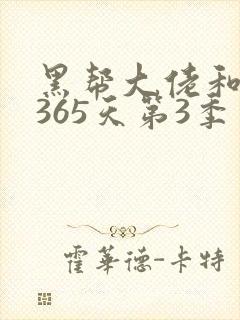 黑帮大佬和
365天第3季
霍华德-卡特